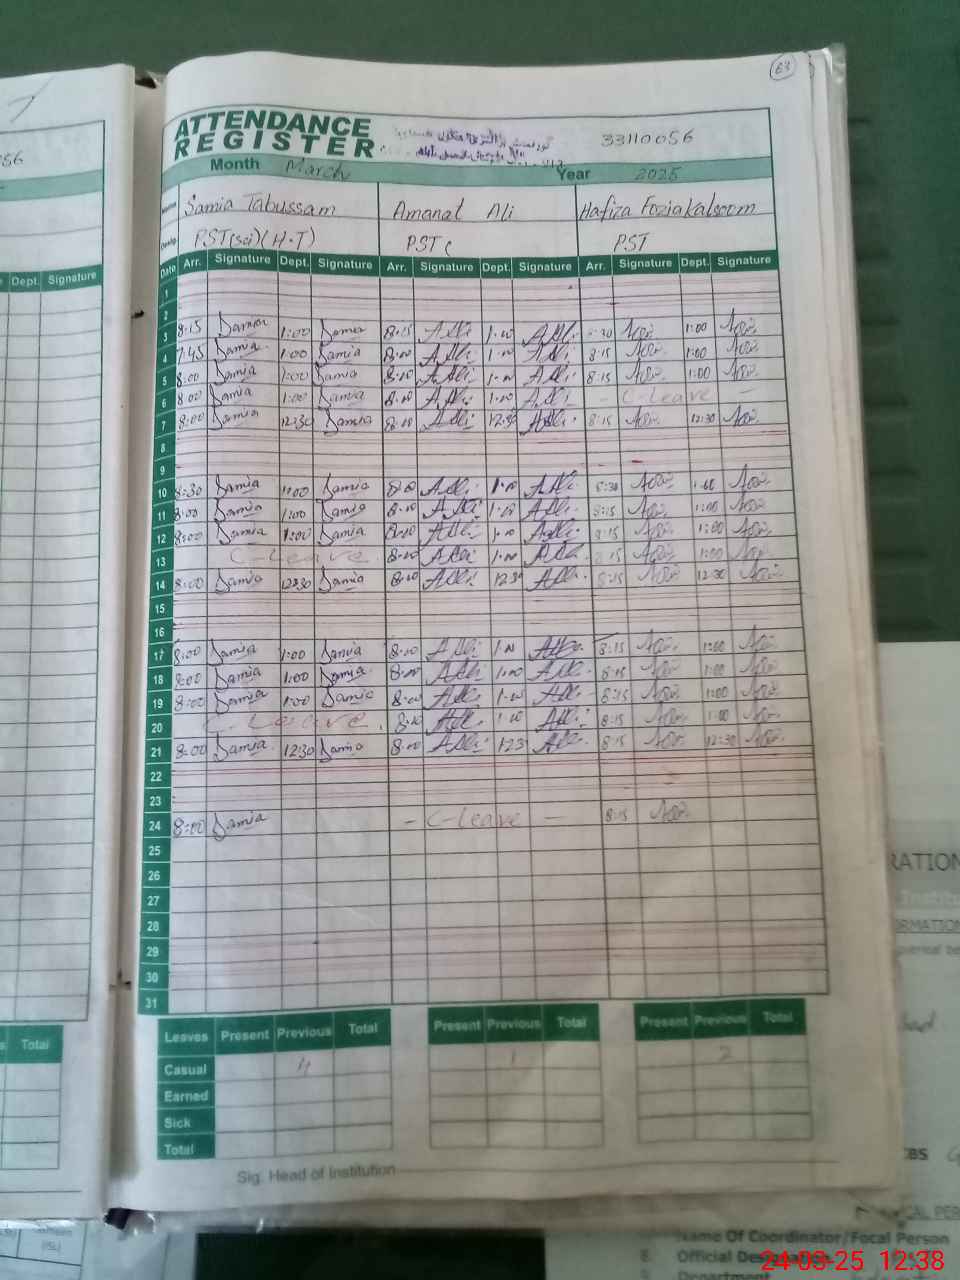 63
ATTENDANCE
REGISTER
33110056
Month March Year 2025
Samia Tabussam Amanat Ali Hafiza Fozia Kalsoom
Desig. PST(sci)(H.T) PST( PST
Date Arr. Signature Dept. Signature Arr. Signature Dept. Signature Arr. Signature Dept. Signature
1
2
3 8:15 Samia 1:00 Samia 8:15 A.Ali 1.00 A.Ali 8:30 1:00
4 7:45 Samia 1:00 Samia 8:00 A.Ali 1.00 A.Ali 8:15 1:00
5 8:00 Samia 1:00 Samia 8:00 A.Ali 1.00 A.Ali 8:15 1:00
6 8:00 Samia 1:00 Samia 8:00 A.Ali 1.00 A.Ali - C-Leave -
7 8:00 Samia 12:30 Samia 8:00 A.Ali 12:30 A.Ali 8:15 12:30
8
9
10 8:30 Samia 1:00 Samia 8:00 A.Ali 1.00 A.Ali 8:30 1:00
11 8:00 Samia 1:00 Samia 8:00 A.Ali 1.00 A.Ali 8:15 1:00
12 8:00 Samia 1:00 Samia 8:00 A.Ali 1.00 A.Ali 8:15 1:00
13 C-Leave 8:00 A.Ali 1.00 A.Ali 8:15 1:00
14 8:00 Samia 12:30 Samia 8:00 A.Ali 12:30 A.Ali 8:15 12:30
15
16
17 8:00 Samia 1:00 Samia 8:00 A.Ali 1.00 A.Ali 8:15 1:00
18 8:00 Samia 1:00 Samia 8:00 A.Ali 1.00 A.Ali 8:15 1:00
19 8:00 Samia 1:00 Samia 8:00 A.Ali 1.00 A.Ali 8:15 1:00
20 C-Leave 8:00 A.Ali 1.00 A.Ali 8:15 1:00
21 8:00 Samia 12:30 Samia 8:00 A.Ali 12:3 A.Ali 8:15 12:30
22
23
24 8:00 Samia - C-Leave - 8:15
25
26
27
28
29
30
31
Leaves Present Previous Total Present Previous Total Present Previous Total
Casual 4 1 2
Earned
Sick
Total
Sig. Head of Institution
56
Dept. Signature
Total
RATION
Institu
ORMATION
CBS
CAL PER
Name Of Coordinator/Focal Person
8. Official Designation
9. Department
24-03-25 12:38